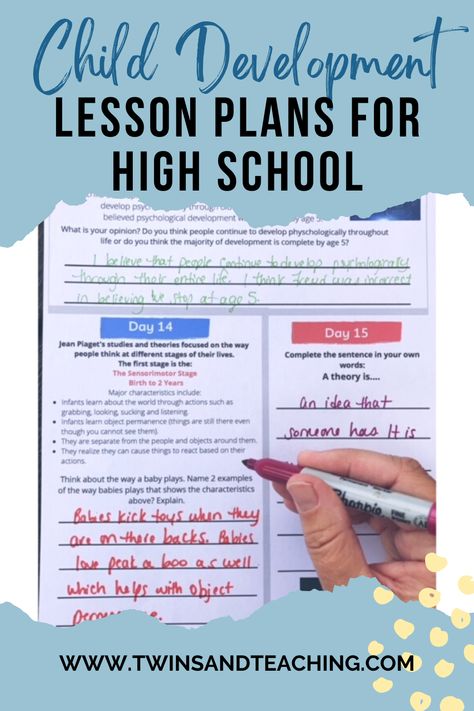 Child Development
LESSON PLANS FOR
HIGH SCHOOL
believed psychological development
by age 5.
What is your opinion? Do you think people continue to develop phsychologically throughout
life or do you think the majority of development is complete by age 5?
I believe that people continue to develop
through their entire life. I think Freud was incorrect
in believing we stop at age 5.
Day 14
Jean Piaget's studies and theories focused on the way
people think at different stages of their lives.
The first stage is the:
The Sensorimotor Stage
Birth to 2 Years
Major characteristics include:
• Infants learn about the world through actions such as
grabbing, looking, sucking and listening.
• Infants learn object permanence (things are still there even
though you cannot see them).
• They are separate from the people and objects around them.
• They realize they can cause things to react based on their
actions.
Think about the way a baby plays. Name 2 examples
of the way babies plays that shows the characteristics
above? Explain.
Babies kick toys when they
are on there backs. Babies
love peak a boo as well
which helps with object
Day 15
Complete the sentence in your own
words:
A theory is....
an idea that
someone has It is
Sharpie
FINE
WWW.TWINSANDTEACHING.COM